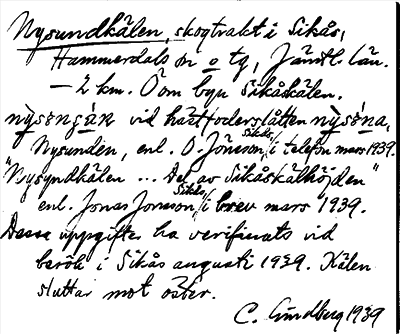 Nysundkälen, skogtrakt i Sikås,
Hammerdals sn o tg, Jämtl. län.
— 2 km. Ö om byn Sikåskälen.
vid hårdfoderslåtten
Nysunden, enl. O. Jönsson, Sikås, i telefon mars 1939.
"Nysyndkälen ... Del av Sikåskälhöjden"
enl. Jonas Jonsson, Sikås, i brev mars 1939.
Dessa uppgifter ha verifierats vid
besök i Sikås augusti 1939. Kälen
sluttar mot öster.
C. Lundberg 1939